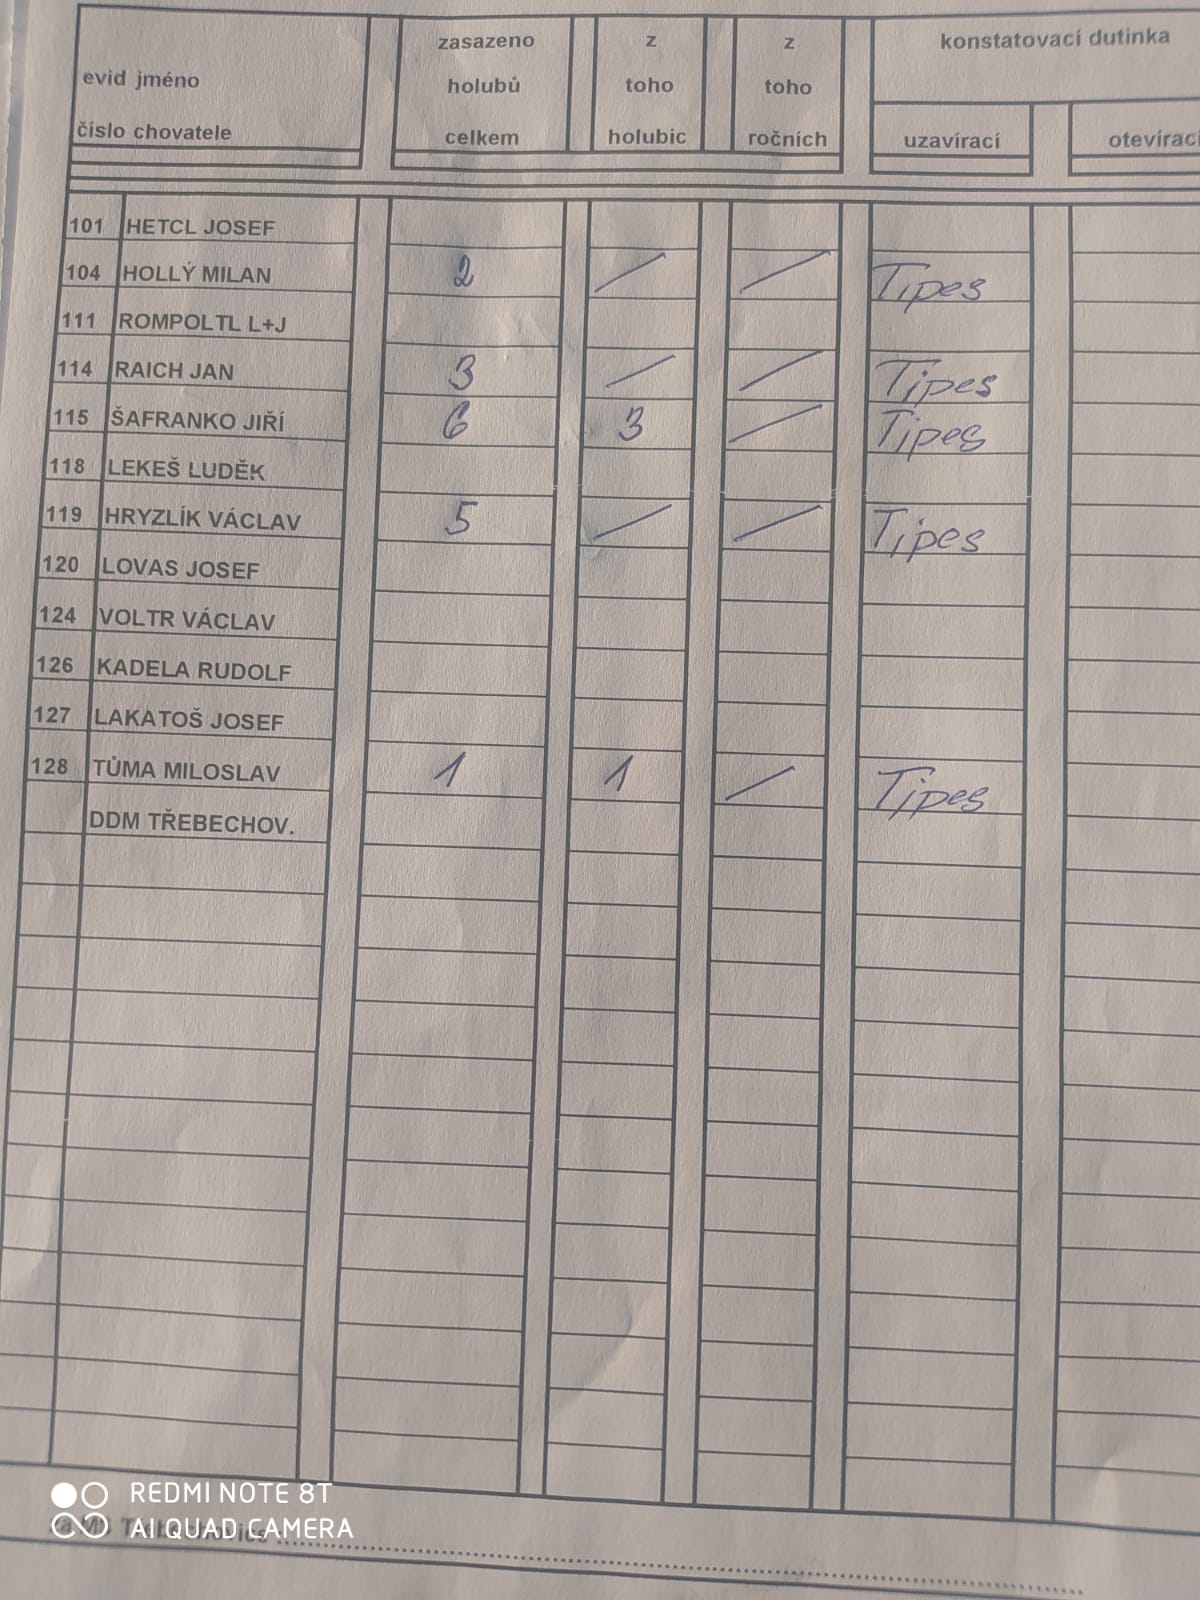 evid jméno
číslo chovatele
zasazeno
holubů
celkem
z
toho
holubic
z
toho
ročních
konstatovací dutinka
uzavírací
otevírací
101 HETCL JOSEF
104 HOLLÝ MILAN 2 / / Tipes
111 ROMPOLTL L+J
114 RAICH JAN 3 / / Tipes
115 ŠAFRANKO JIŘÍ 6 3 / Tipes
118 LEKEŠ LUDĚK
119 HRYZLÍK VÁCLAV 5 / / Tipes
120 LOVAS JOSEF
124 VOLTR VÁCLAV
126 KADELA RUDOLF
127 LAKATOŠ JOSEF
128 TŮMA MILOSLAV 1 1 / Tipes
DDM TŘEBECHOV.
REDMI NOTE 8T
AI QUAD CAMERA